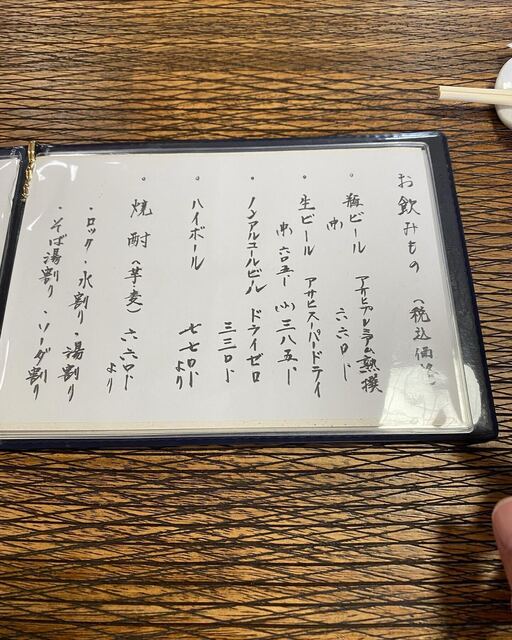 お飲みもの （税込価格）
。瓶ビール アサヒプレミアム熟撰
（中） 六六〇、
。生ビール アサヒスーパードライ
（中） 六〇五、 （小） 三八五、
。ノンアルコールビール ドライゼロ
三三〇、
。ハイボール 七七〇、より
。焼酎（芋麦） 六六〇、より
・ロック・水割り・湯割り
・そば湯割り・ソーダ割り